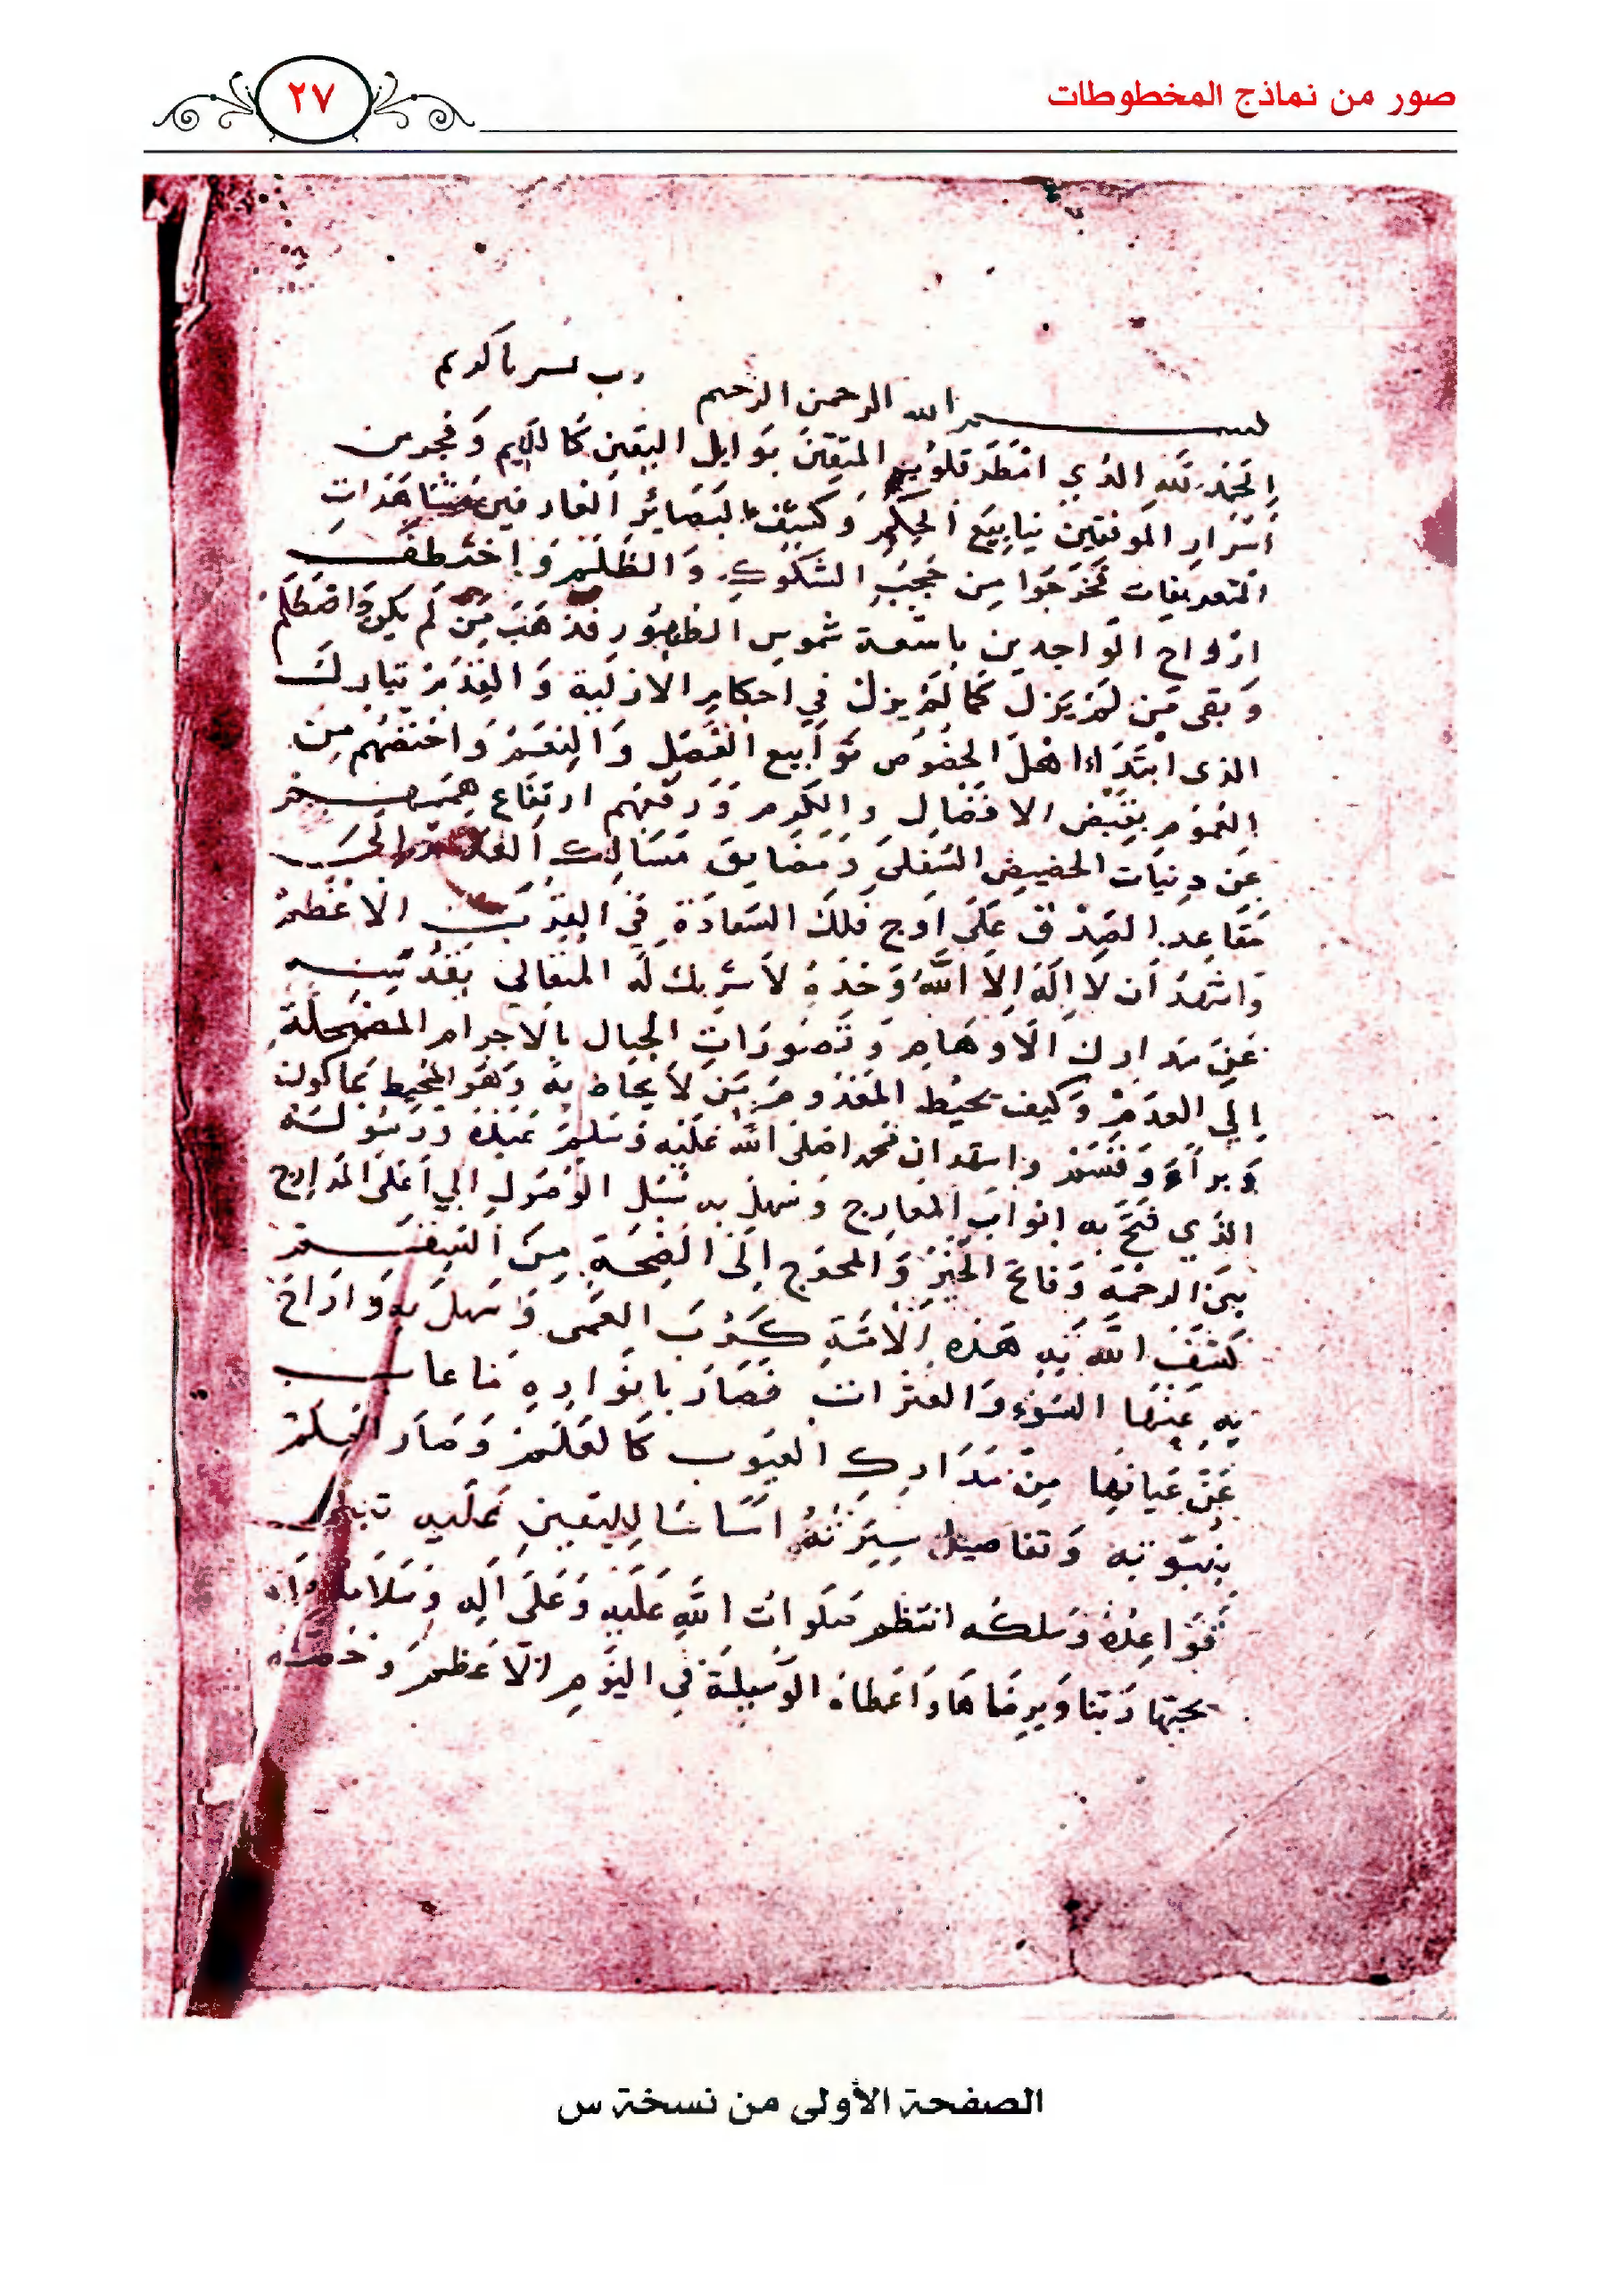 صور من نماذج المخطوطات
٢٧
رب يسر يا كريم
بسم الله الرحمن الرحيم
الحمد لله الذي امطر قلوب المتقين بوابل اليقين كالديم وفجر من
اسرار الموقنين ينابيع الحكم وكشف لبصائر العارفين مشاهدات
التعريفات فخرجوا من حجب الشكوك والظلم واختطف
ارواح الواجدين باشعة شموس الظهور فذهب من لم يكن واضطلم
وبقى من لم يزل كما لم يزل في احكام الازلية والقدم تبارك
الذى ابتدا اهل الخصوص بتوابيع الفضل والنعم واختصهم من
العموم بفيض الافضال والكرم ورقى بهم ارتفاع هممهم
عن دنيات الحضيض السفلى ومضايق مسالك الى
مقاعد الصدق على اوج فلك السعادة في القرب الاعظم
واشهد ان لا اله الا الله وحده لا شريك له المتعالي بتقديسه
عن مدارك الاوهام وتصورات الخيال بالاجرام المضمحلة
الي العدم وكيف يحيط المعدوم بمن لا يحاط به وهو المحيط بما كون
وبراه وقسم واشهد ان محمدا صلى الله عليه وسلم عبده ورسوله
الذي فتح به ابواب المعارج وسهل به سبل الوصول الي اعلى المدارج
نبى الرحمة وفاتح الخير والمخرج الى الصحة من السقم
كشف الله به هذه الامة كرب العمى وسهل به وازاح
به عنها السوء والعثرات فصار بانواره ما غاب
عن عيانها من مدارك العيوب كالعلم وصار العلم
بنبوته وتفاصيل سيرته اساسا لليقين عليه تبنى
قواعده وسلكه انتظم صلوات الله عليه وعلى اله وسلامه
يحبها ربنا ويرضاها واعطاه الوسيلة في اليوم الاعظم
الصفحة الأولى من نسخة س